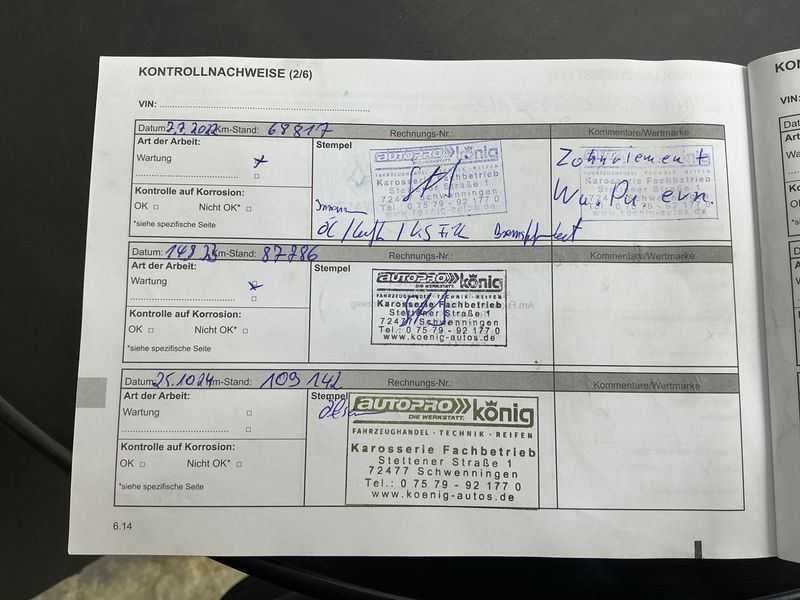 KONTROLLNACHWEISE (2/6)
VIN:
Datum: 7.7.2022 Km-Stand: 68817 Rechnungs-Nr.: Kommentare/Wertmarke
Art der Arbeit:
Wartung
Kontrolle auf Korrosion:
OK Nicht OK*
*siehe spezifische Seite
Stempel
AUTOPRO könig
DIE WERKSTATT.
FAHRZEUGHANDEL - TECHNIK - REIFEN
Karosserie Fachbetrieb
Stettener Straße 1
72477 Schwenningen
Tel.: 0 75 79 - 92 177 0
www.koenig-autos.de
Öl / Luft / KS Filt
Zahnriemen +
Wa. Pu. ern.
Datum: 14.8 23 Km-Stand: 87786 Rechnungs-Nr.: Kommentare/Wertmarke
Art der Arbeit:
Wartung
Kontrolle auf Korrosion:
OK Nicht OK*
*siehe spezifische Seite
Stempel
AUTOPRO könig
DIE WERKSTATT.
FAHRZEUGHANDEL - TECHNIK - REIFEN
Karosserie Fachbetrieb
Stettener Straße 1
72477 Schwenningen
Tel.: 0 75 79 - 92 177 0
www.koenig-autos.de
Datum: 25.10.24 Km-Stand: 109 142 Rechnungs-Nr.: Kommentare/Wertmarke
Art der Arbeit:
Wartung
Kontrolle auf Korrosion:
OK Nicht OK*
*siehe spezifische Seite
Stempel
AUTOPRO könig
DIE WERKSTATT.
FAHRZEUGHANDEL - TECHNIK - REIFEN
Karosserie Fachbetrieb
Stettener Straße 1
72477 Schwenningen
Tel.: 0 75 79 - 92 177 0
www.koenig-autos.de
6.14
KON
VIN: